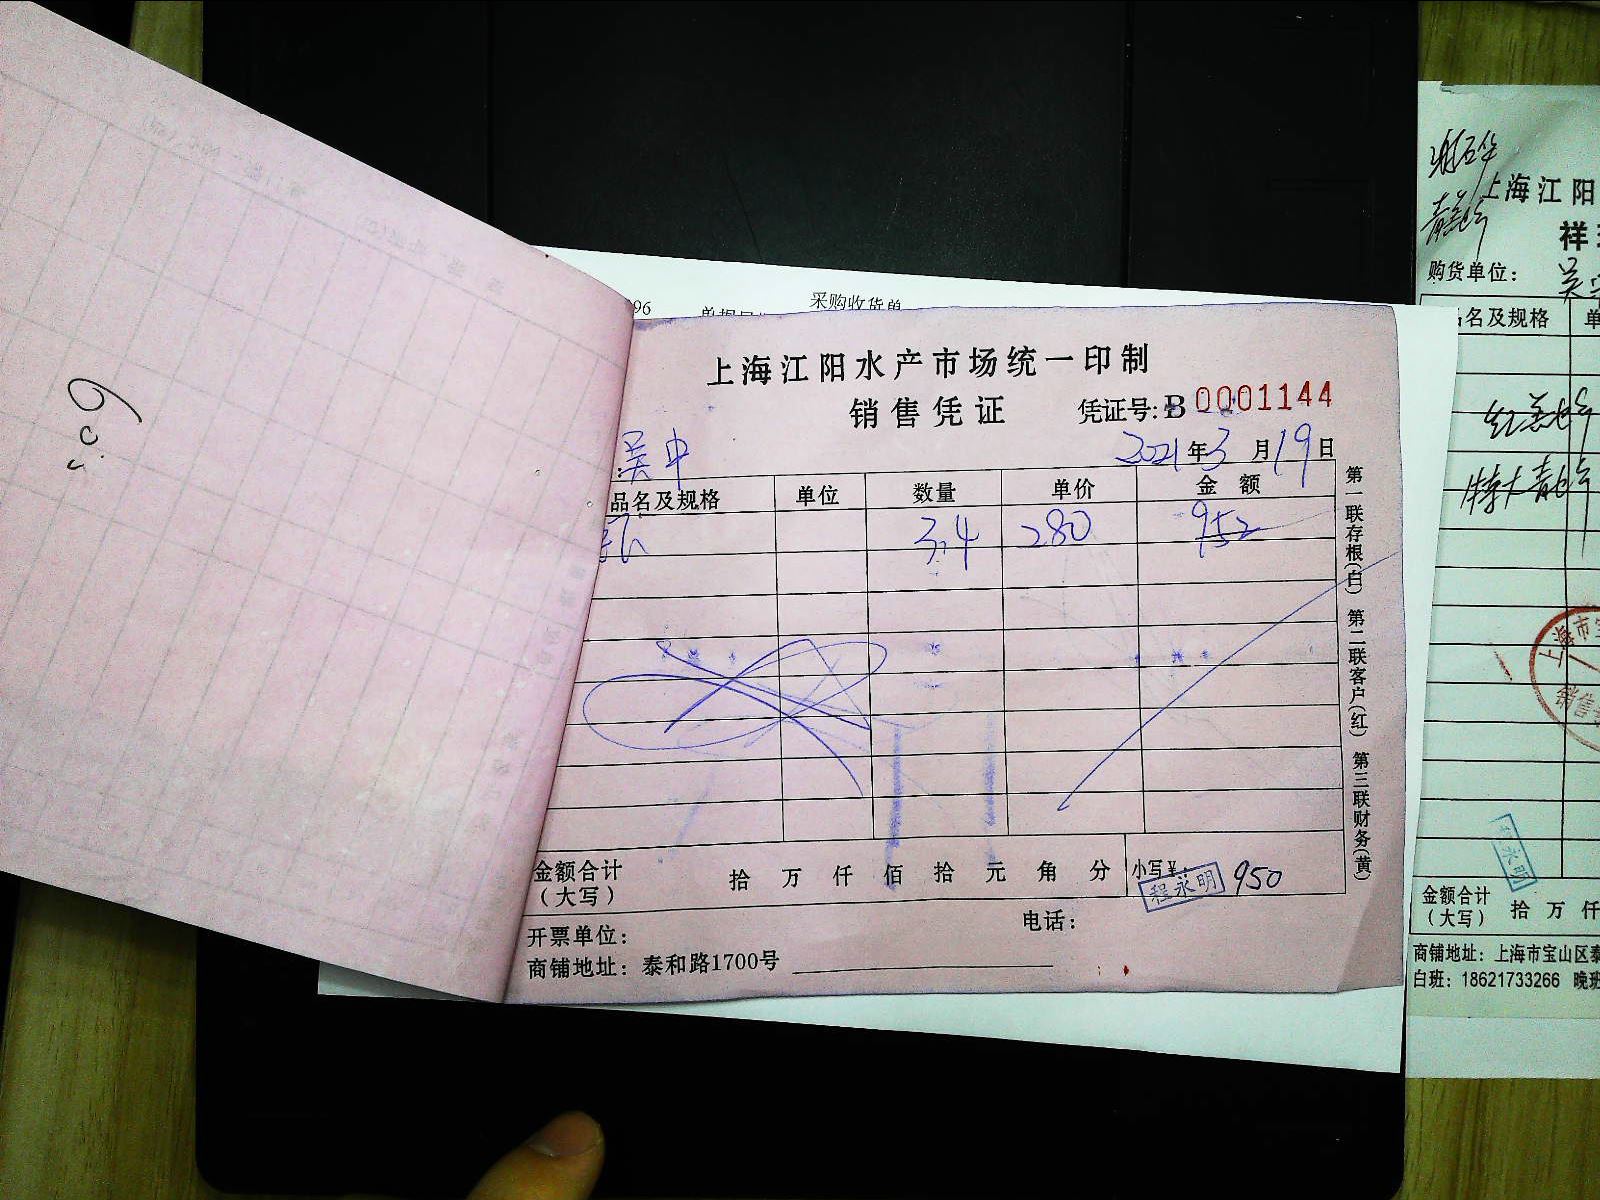 96
采购收货单
上海江阳水产市场统一印制
销售凭证 凭证号:B 0001144
吴中 2021年3月19日
品名及规格 单位 数量 单价 金额
3.4 280 952
第一联存根(白) 第二联客户(红) 第三联财务(黄)
金额合计(大写) 拾 万 仟 佰 拾 元 角 分 小写¥: 950
程永明
开票单位: 电话:
商铺地址: 泰和路1700号
上海江阳
祥
购货单位: 吴
品名及规格 单
特大青
上海市宝
销售
永明
金额合计(大写) 拾 万 仟
商铺地址: 上海市宝山区泰
白班: 18621733266 晚班